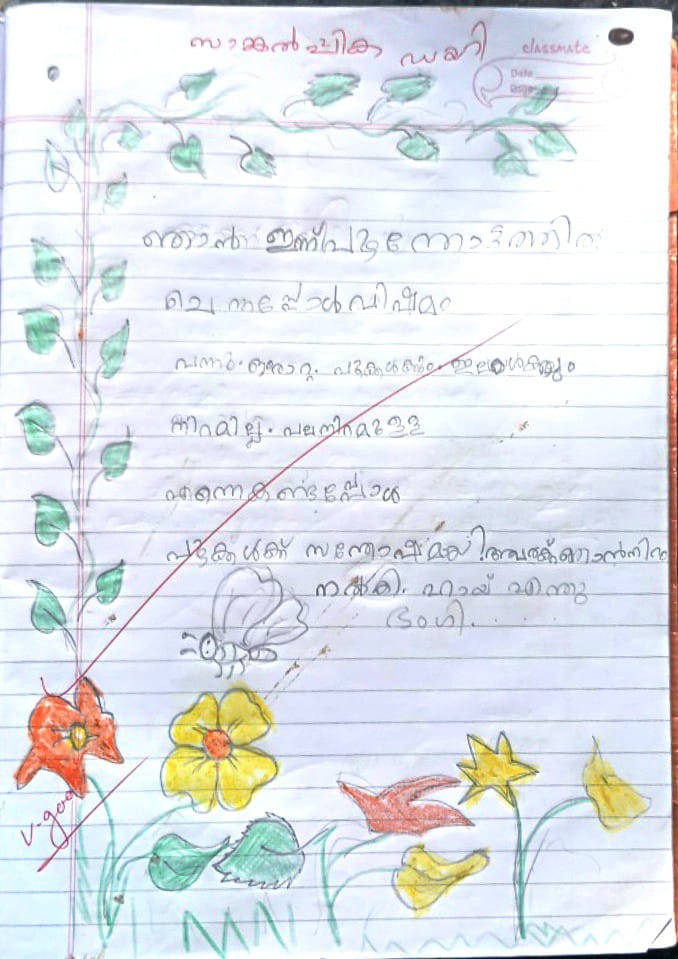 സാങ്കൽപ്പിക ഡയറി
classmate
Date
Page
ഞാൻ ഇന്ന് പൂന്തോട്ടത്തിൽ
ചെന്നപ്പോൾ വിഷമം
വന്നു. ഒരൊറ്റ പൂക്കൾക്കും ഇലകൾക്കും
നിറമില്ല. പലനിറമുള്ള
എന്നെകണ്ടപ്പോൾ
പൂക്കൾക്ക് സന്തോഷമായി! അവർക്ക് ഞാൻ നിറം
നൽകി. ഹായ് എന്തു
ഭംഗി......
V. good